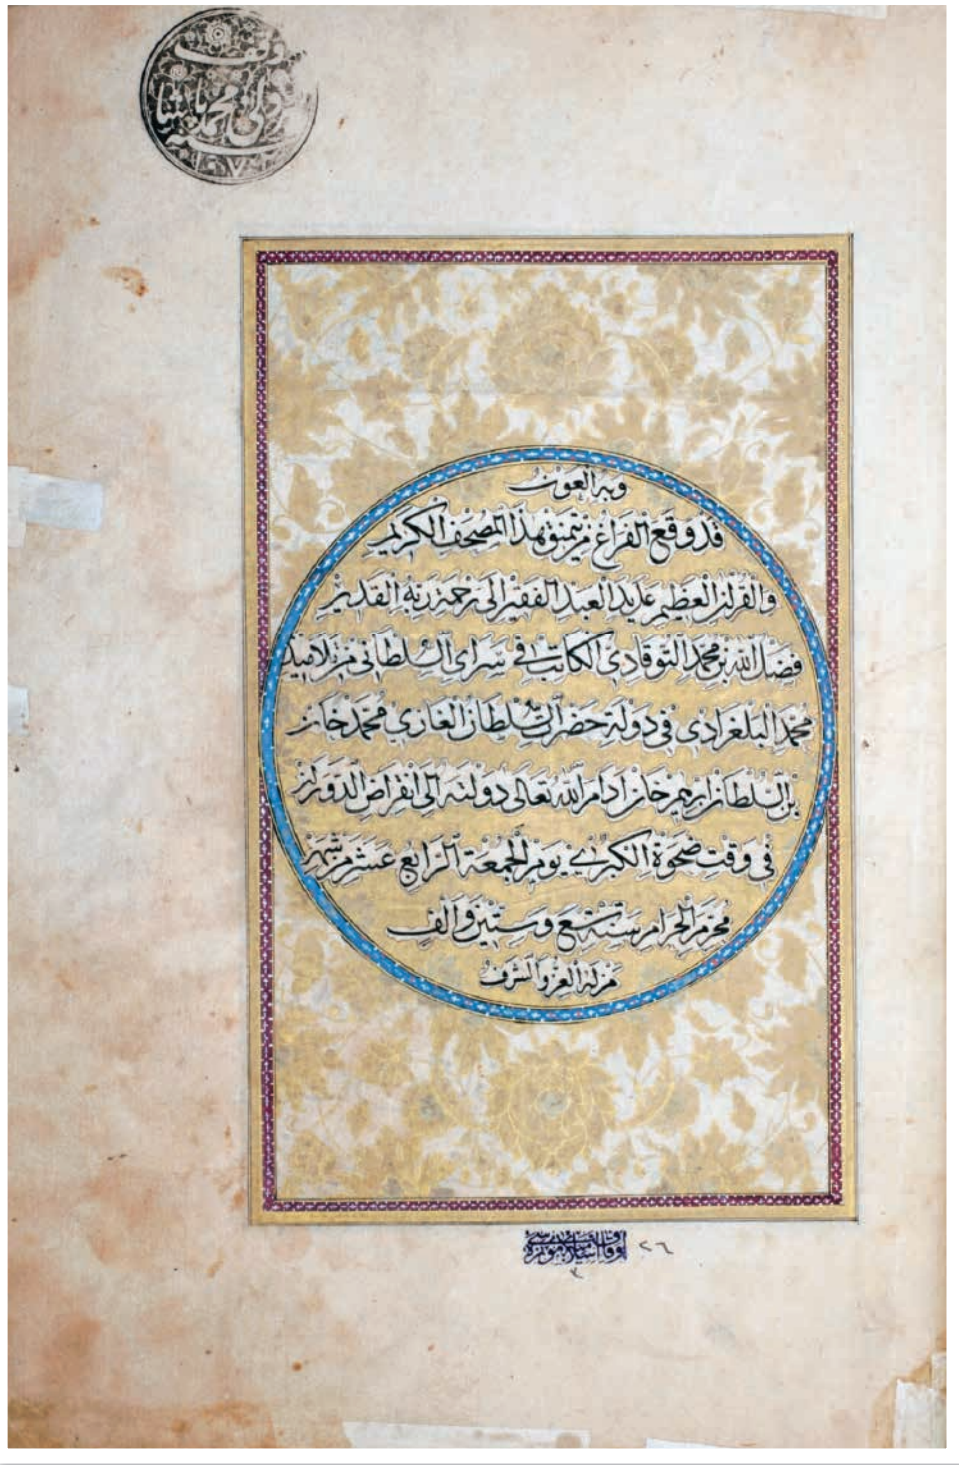 وقف
والی محمد پاشا
سنه ١٠٧
وبه العون
قد وقع الفراغ من تنميق هذا المصحف الكريم
والقرآن العظيم عن يد العبد الفقير الى رحمة ربه القدير
فضل الله بن محمد التوقادى الكاتب فى سراى السلطانى من تلاميذ
محمد البلغرادى فى دولة حضرت السلطان الغازى محمد خان
بن السلطان ابرهيم خان ادام الله تعالى دولته الى انقراض الدوران
فى وقت ضحوة الكبرى يوم الجمعة الرابع عشر من شهر
محرم الحرام سنة تسع وستين والف
من له العز والشرف
اوقاف اسلاميه موزه سى ٢٦
٣